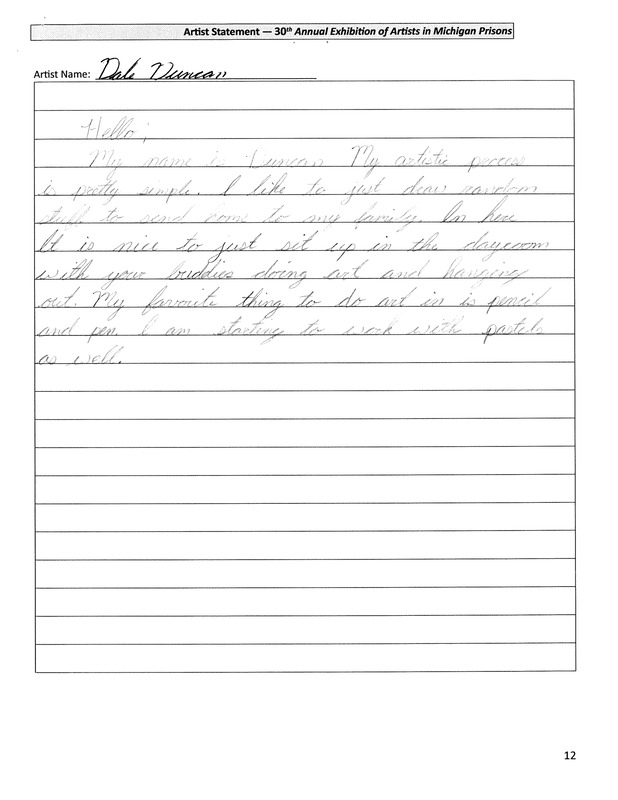 Artist Statement — 30th Annual Exhibition of Artists in Michigan Prisons
Artist Name: Dale Duncan
Hello;
My name is Duncan My artistic process
is pretty simple. I like to just draw random
stuff to send home to my family. In here
It is nice to just sit up in the dayroom
with your buddies doing art and hanging
out. My favorite thing to do art in is pencil
and pen. I am starting to work with pastels
as well.
12